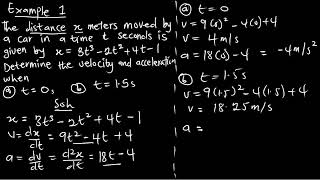 Example 1
The distance x meters moved by
a car in a time t seconds is
given by x = 3t³ - 2t² + 4t - 1
Determine the velocity and acceleration
when
(a) t = 0, (b) t = 1.5s
Soln
x = 3t³ - 2t² + 4t - 1
v = dx/dt = 9t² - 4t + 4
a = dv/dt = d²x/dt² = 18t - 4
(a) t = 0
v = 9(0)² - 4(0) + 4
v = 4m/s
a = 18(0) - 4 = -4m/s²
(b) t = 1.5s
v = 9(1.5)² - 4(1.5) + 4
v = 18.25m/s
a =